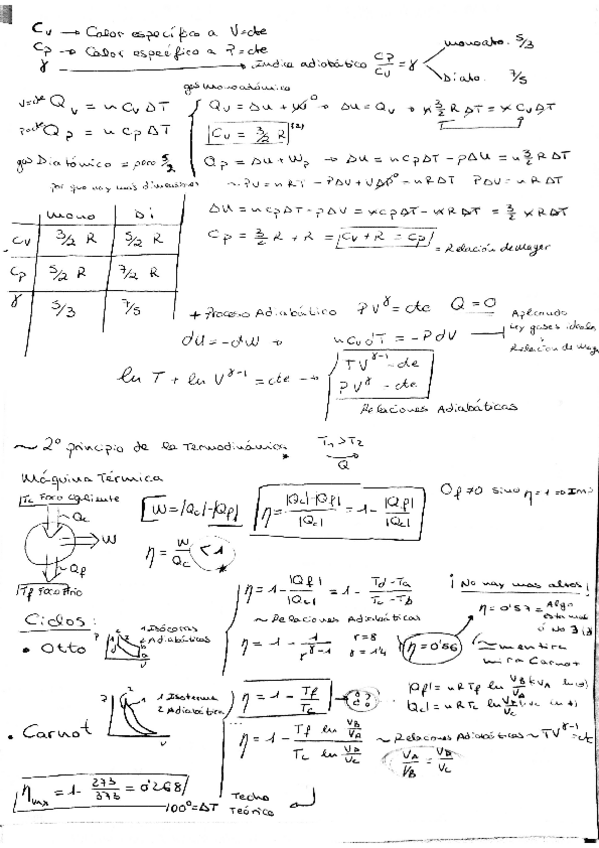 Cv → Calor específico a V=cte
Cp → Calor específico a P=cte
γ → Indice adiabático Cp/Cv = γ < monoato. 5/3
Diato. 7/5
gas monoatómico
V=cte Qv = n Cv ΔT
Qv = Δu + W⁰ → Δu = Qv → n 3/2 R ΔT = n Cv ΔT
P=cte Qp = n Cp ΔT
Cv = 3/2 R
gas Diatómico = pero 5/2
Qp = Δu + Wp → Δu = n Cp ΔT - pΔu = n 3/2 R ΔT
por que hay mas dimensiones
~ PV = nRT - PΔV + VΔP⁰ - nRΔT PΔV = nRΔT
mono Di
Δu = n Cp ΔT - pΔV = n Cp ΔT - nRΔT = 3/2 nRΔT
Cv 3/2 R 5/2 R
Cp = 3/2 R + R = Cv + R = Cp = Relación de Mayer
Cp 5/2 R 7/2 R
γ 5/3 7/5
+ Proceso Adiabático PV^γ = cte Q = 0
Aplicando
ley gases ideales
Relacion de May
du = -dw → n Cv dT = -P dV
ln T + ln V^γ-1 = cte →
TV^γ-1 - cte
PV^γ - cte
Relaciones Adiabáticas
~ 2º principio de la Termodinámica T1 > T2
Q
Máquina Térmica
Tc Foco Caliente
Qc
W
Qf
Tf Foco Frio
W = |Qc| - |Qf|
η = |Qc| - |Qf| / |Qc| = 1 - |Qf| / |Qc|
Qf ≠ 0 sino η = 1 →
η = W/Qc < 1
Ciclos:
• Otto
2 Isócoras
2 Adiabáticas
η = 1 - |Qf| / |Qc| = 1 - Td - Ta / Tc - Tb
¡No hay mas altos!
~ Relaciones Adiabáticas
η = 0'57 = Algo
η = 1 - 1/r^γ-1 r = 8 γ = 1'4 η = 0'56
~ mentira
mira Carnot
• Carnot
2 Isoterma
2 Adiabática
η = 1 - Tf/Tc → ¿?
|Qf| = nRTf ln VB/VA
|Qc| = nRTc ln
η = 1 - Tf ln VB/VA / Tc ln VD/VC
~ Relaciones Adiabáticas ~ TV^γ-1 = ct
VA/VB = VD/VC
ηmax = 1 - 273/373 = 0'268
100º = ΔT
Techo
Teórico